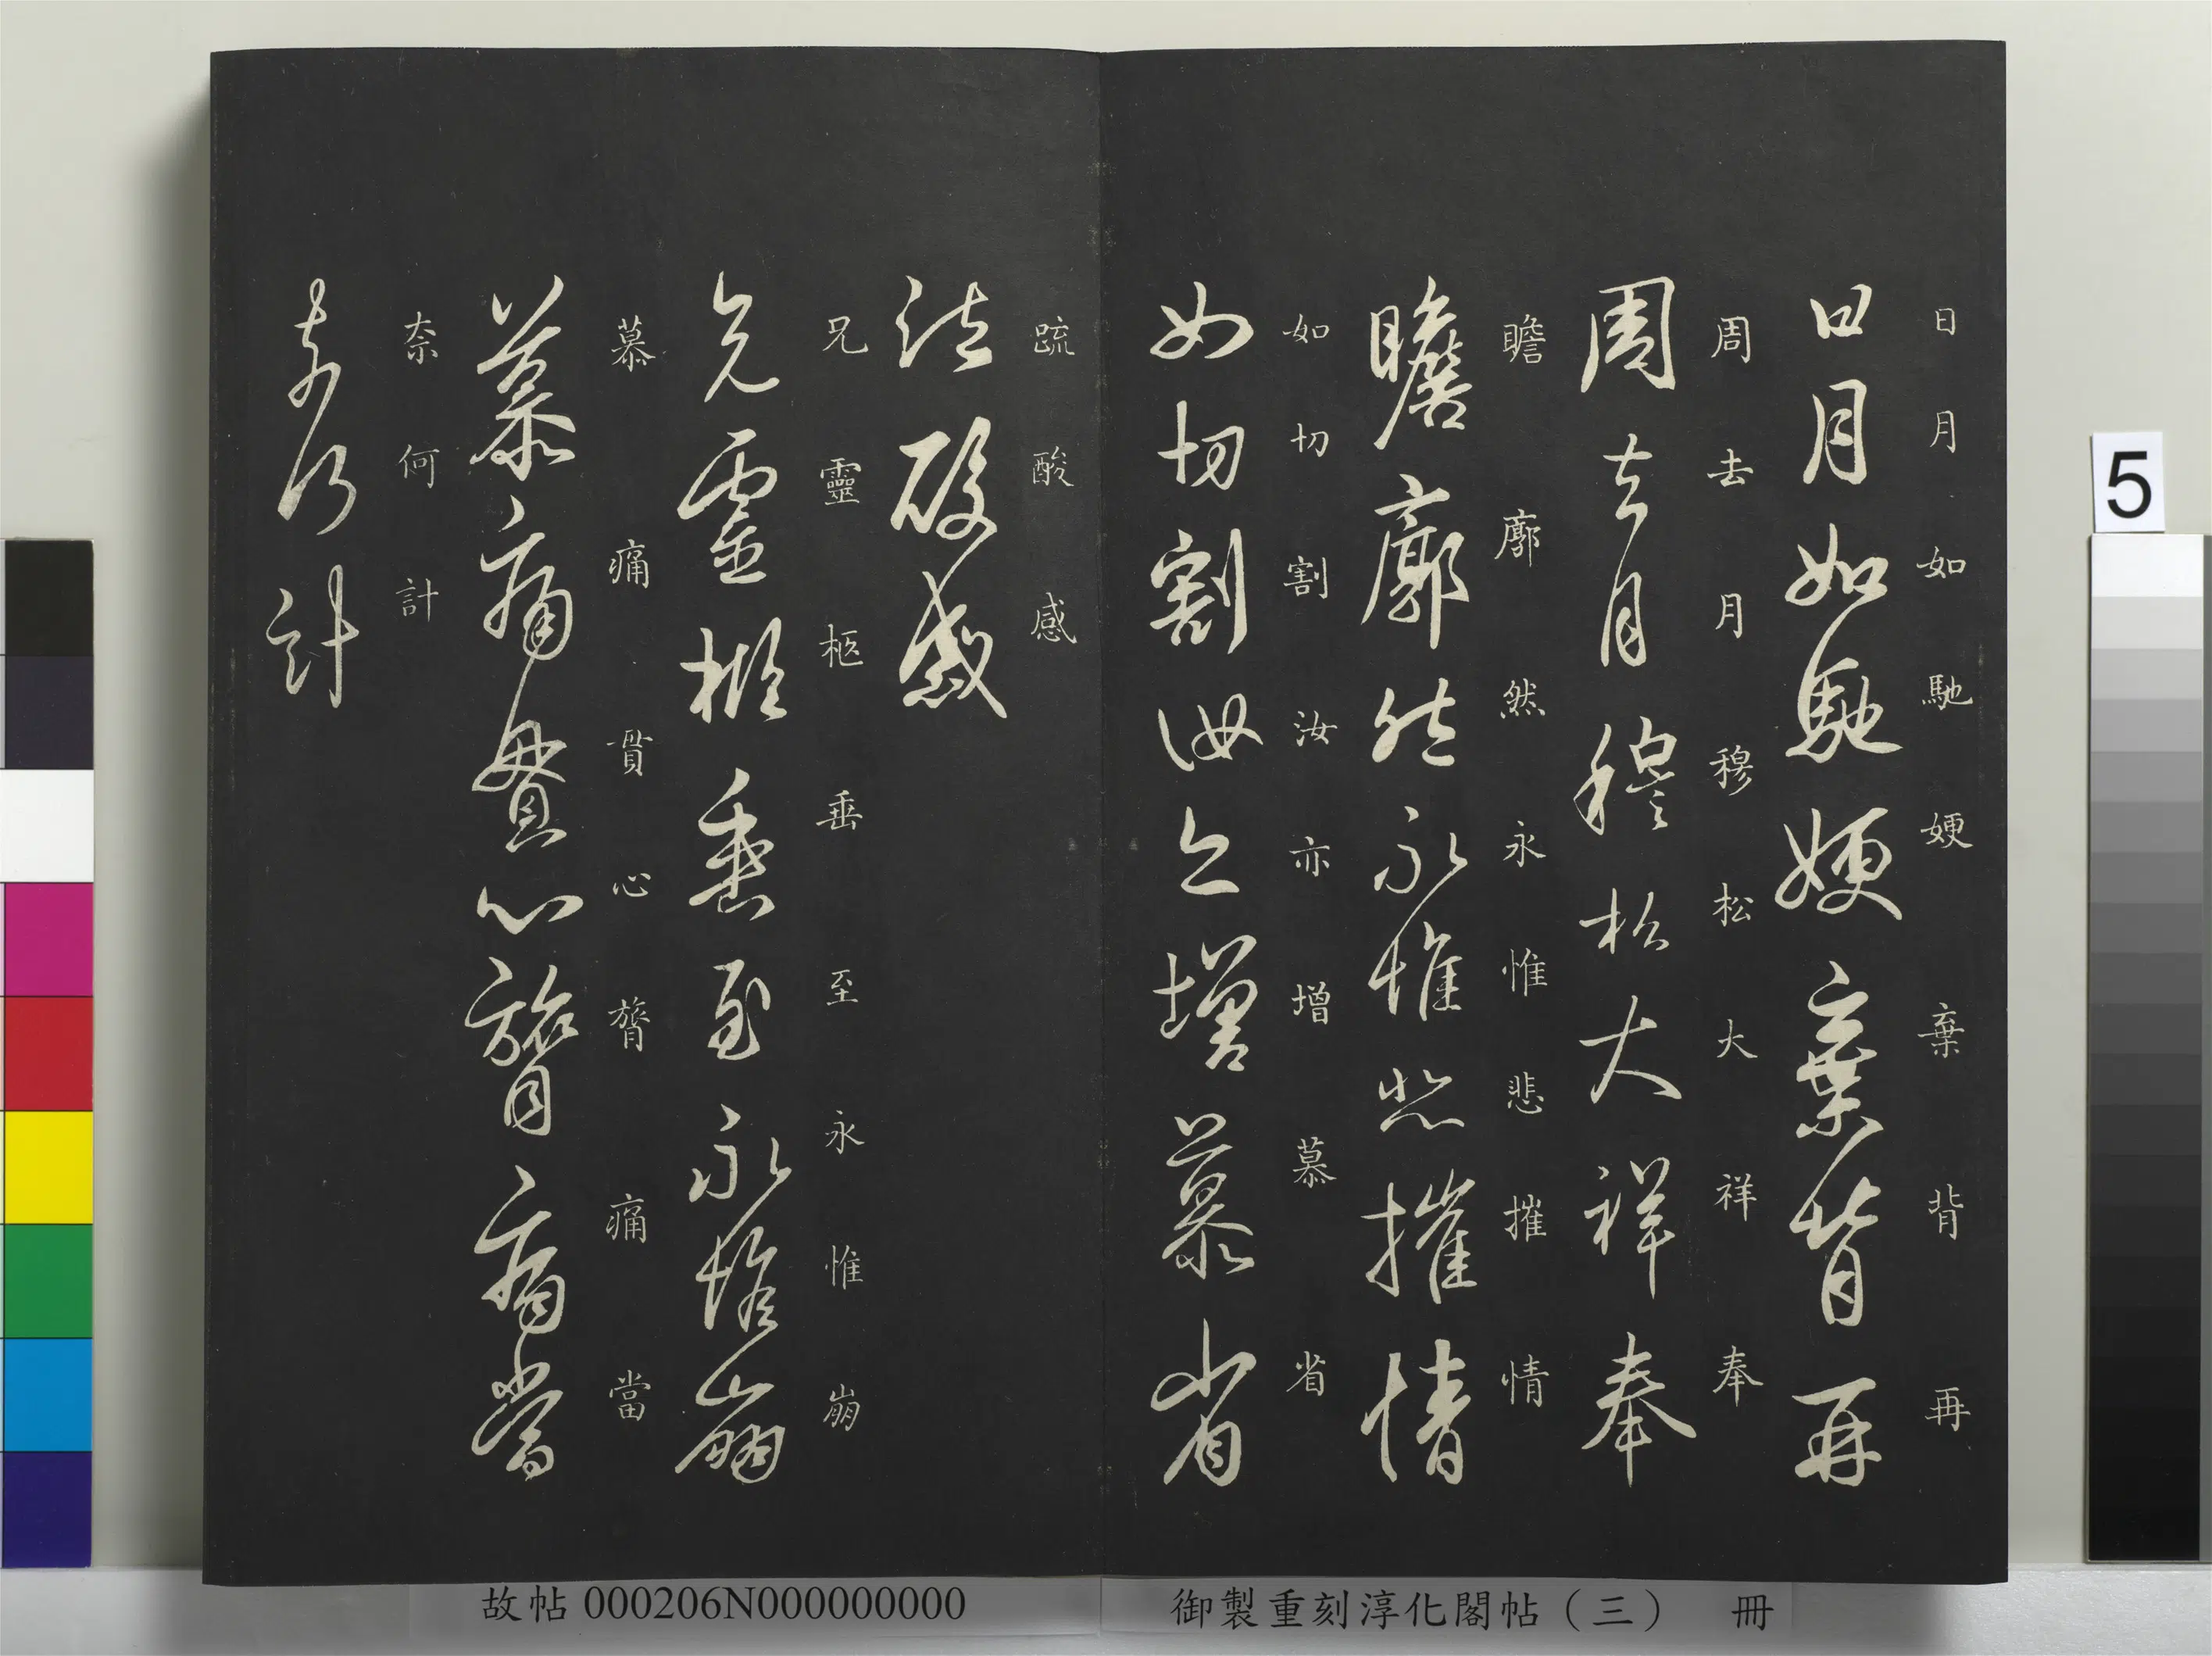 日月如馳嫂棄背再
日月如馳嫂棄背再
周去月穆松大祥奉
周去月穆松大祥奉
瞻廓然永惟悲摧情
瞻廓然永惟悲摧情
如切割汝亦增慕省
如切割汝亦增慕省
疏酸感
疏酸感
兄靈柩垂至永惟崩
兄靈柩垂至永惟崩
慕痛貫心膂痛當
慕痛貫心膂痛當
奈何計
奈何計
御製重刻淳化閣帖（三） 冊
故帖 000206N000000000
5